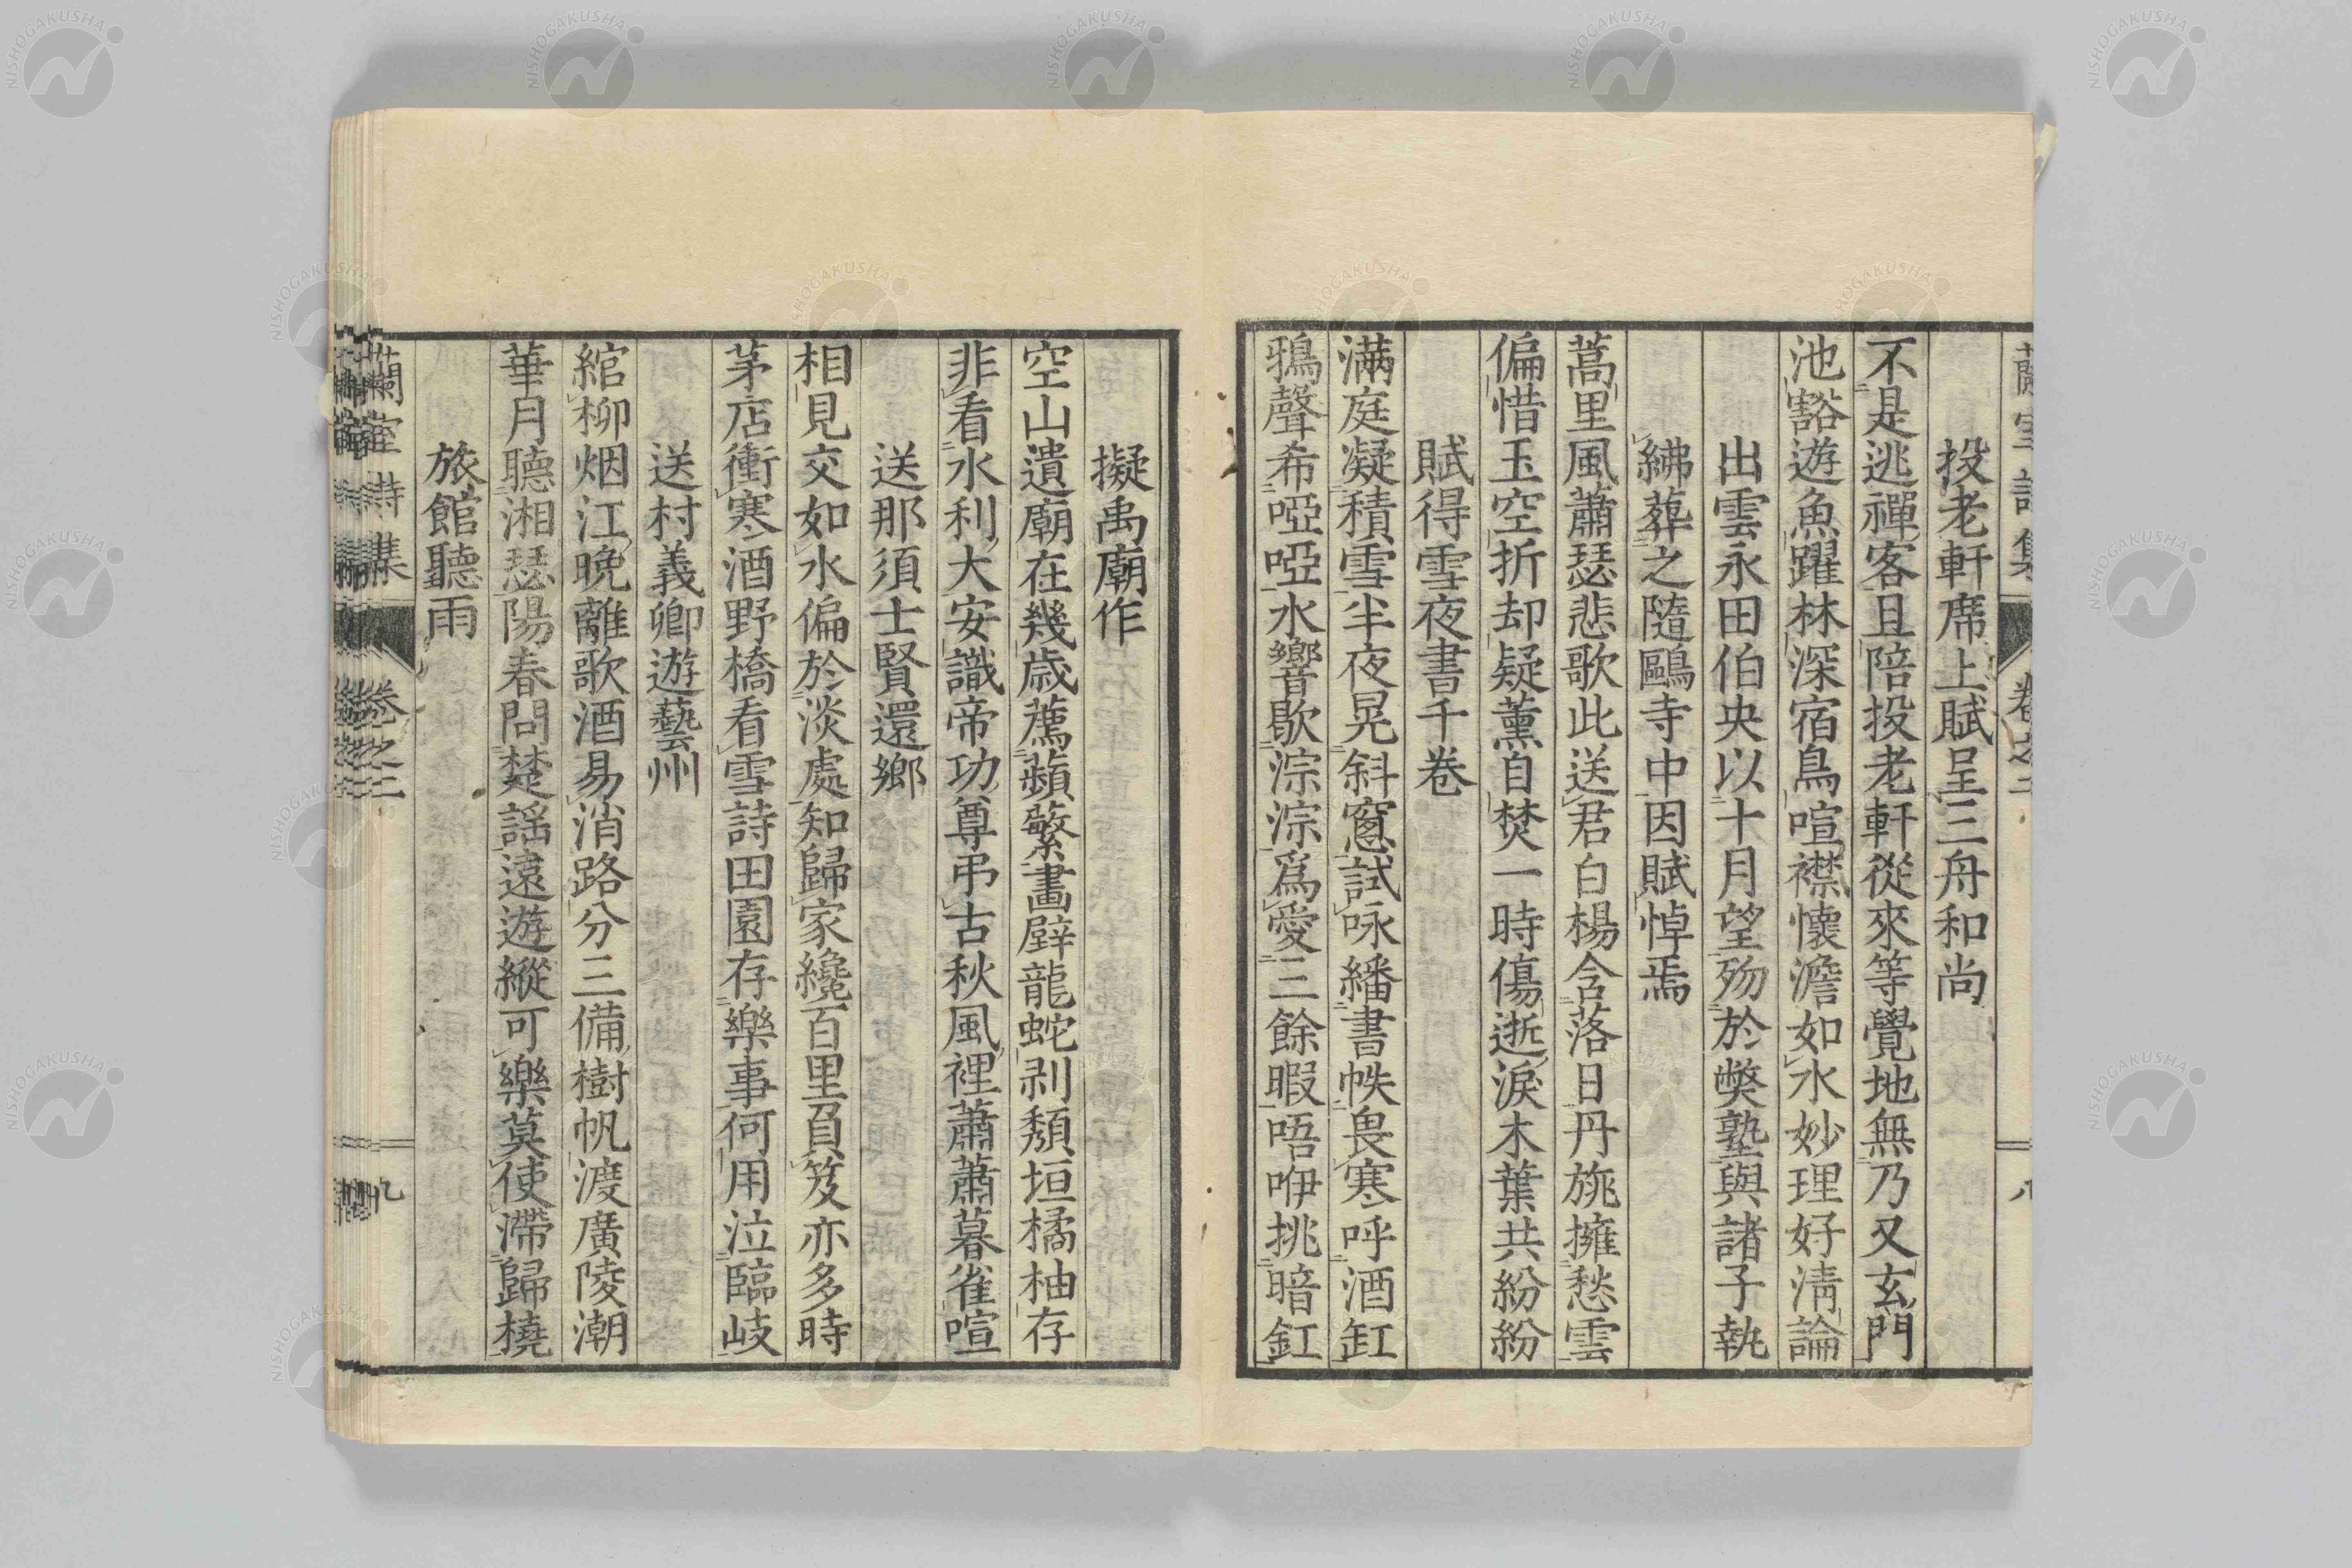 投老軒席上賦呈三舟和尚
不是逃禪客且陪投老軒從來等覺地無乃又玄門
池豁遊魚躍林深宿鳥喧襟懷澹如水妙理好淸論
出雲永田伯央以十月望歿於樊塾與諸子執
紼葬之隨鷗寺中因賦悼焉
蒿里風蕭瑟悲歌此送君白楊含落日丹旐擁愁雲
偏惜玉空折却疑薰自焚一時傷逝淚木葉共紛紛
賦得雪夜書千卷
滿庭凝積雪半夜晃斜窻試咏繙書帙畏寒呼酒缸
鴉聲希啞啞水響歇淙淙爲愛三餘暇唔咿挑暗釭
擬禹廟作
空山遺廟在幾歲薦蘋蘩畫壁龍蛇剥頽垣橘柚存
非看水利大安識帝功尊弔古秋風裡蕭蕭暮雀喧
送那須士賢還鄉
相見交如水偏於淡處知歸家纔百里負笈亦多時
茅店衝寒酒野橋看雪詩田園存樂事何用泣臨岐
送村義卿遊藝州
綰柳烟江晩離歌酒易消路分三備樹帆渡廣陵潮
華月聽湘瑟陽春問楚謠遠遊縱可樂莫使滯歸橈
旅館聽雨
蘭室詩集 卷之二 九
NISHOGAKUSHA